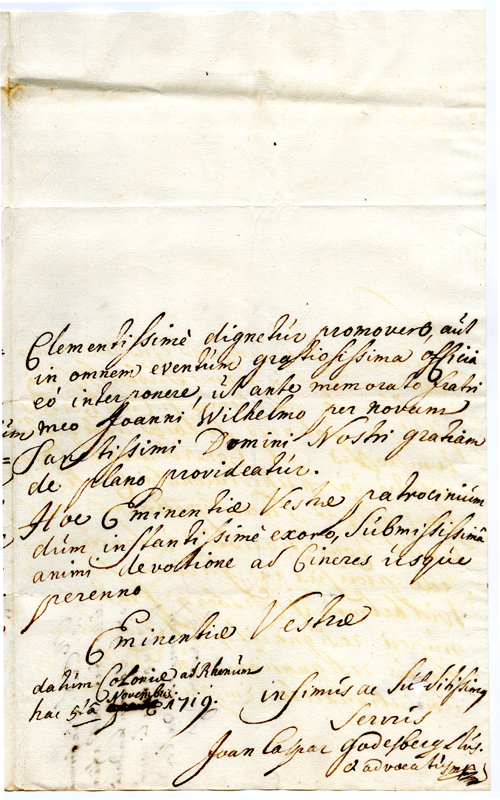 Clementissimè dignetur promovere, aut
in omnem eventum gratiosissima officia
eó interponere, ut ante memorato fratri
meo Joanni Wilhelmo per novam
Sanctissimi Domini Nostri gratiam
de plano provideatur.
Hoc Eminentiæ Vestræ patrocinium
dum instantissimè exoro, submississimâ
animi devotione ad Cineres usque
perenno
Eminentiæ Vestræ
datum Coloniæ ad Rhenum
hac 5tâ Novembris 1719.
infimus ac Subditissimus
Servus
Joan Caspar Godesberg
& advocatus